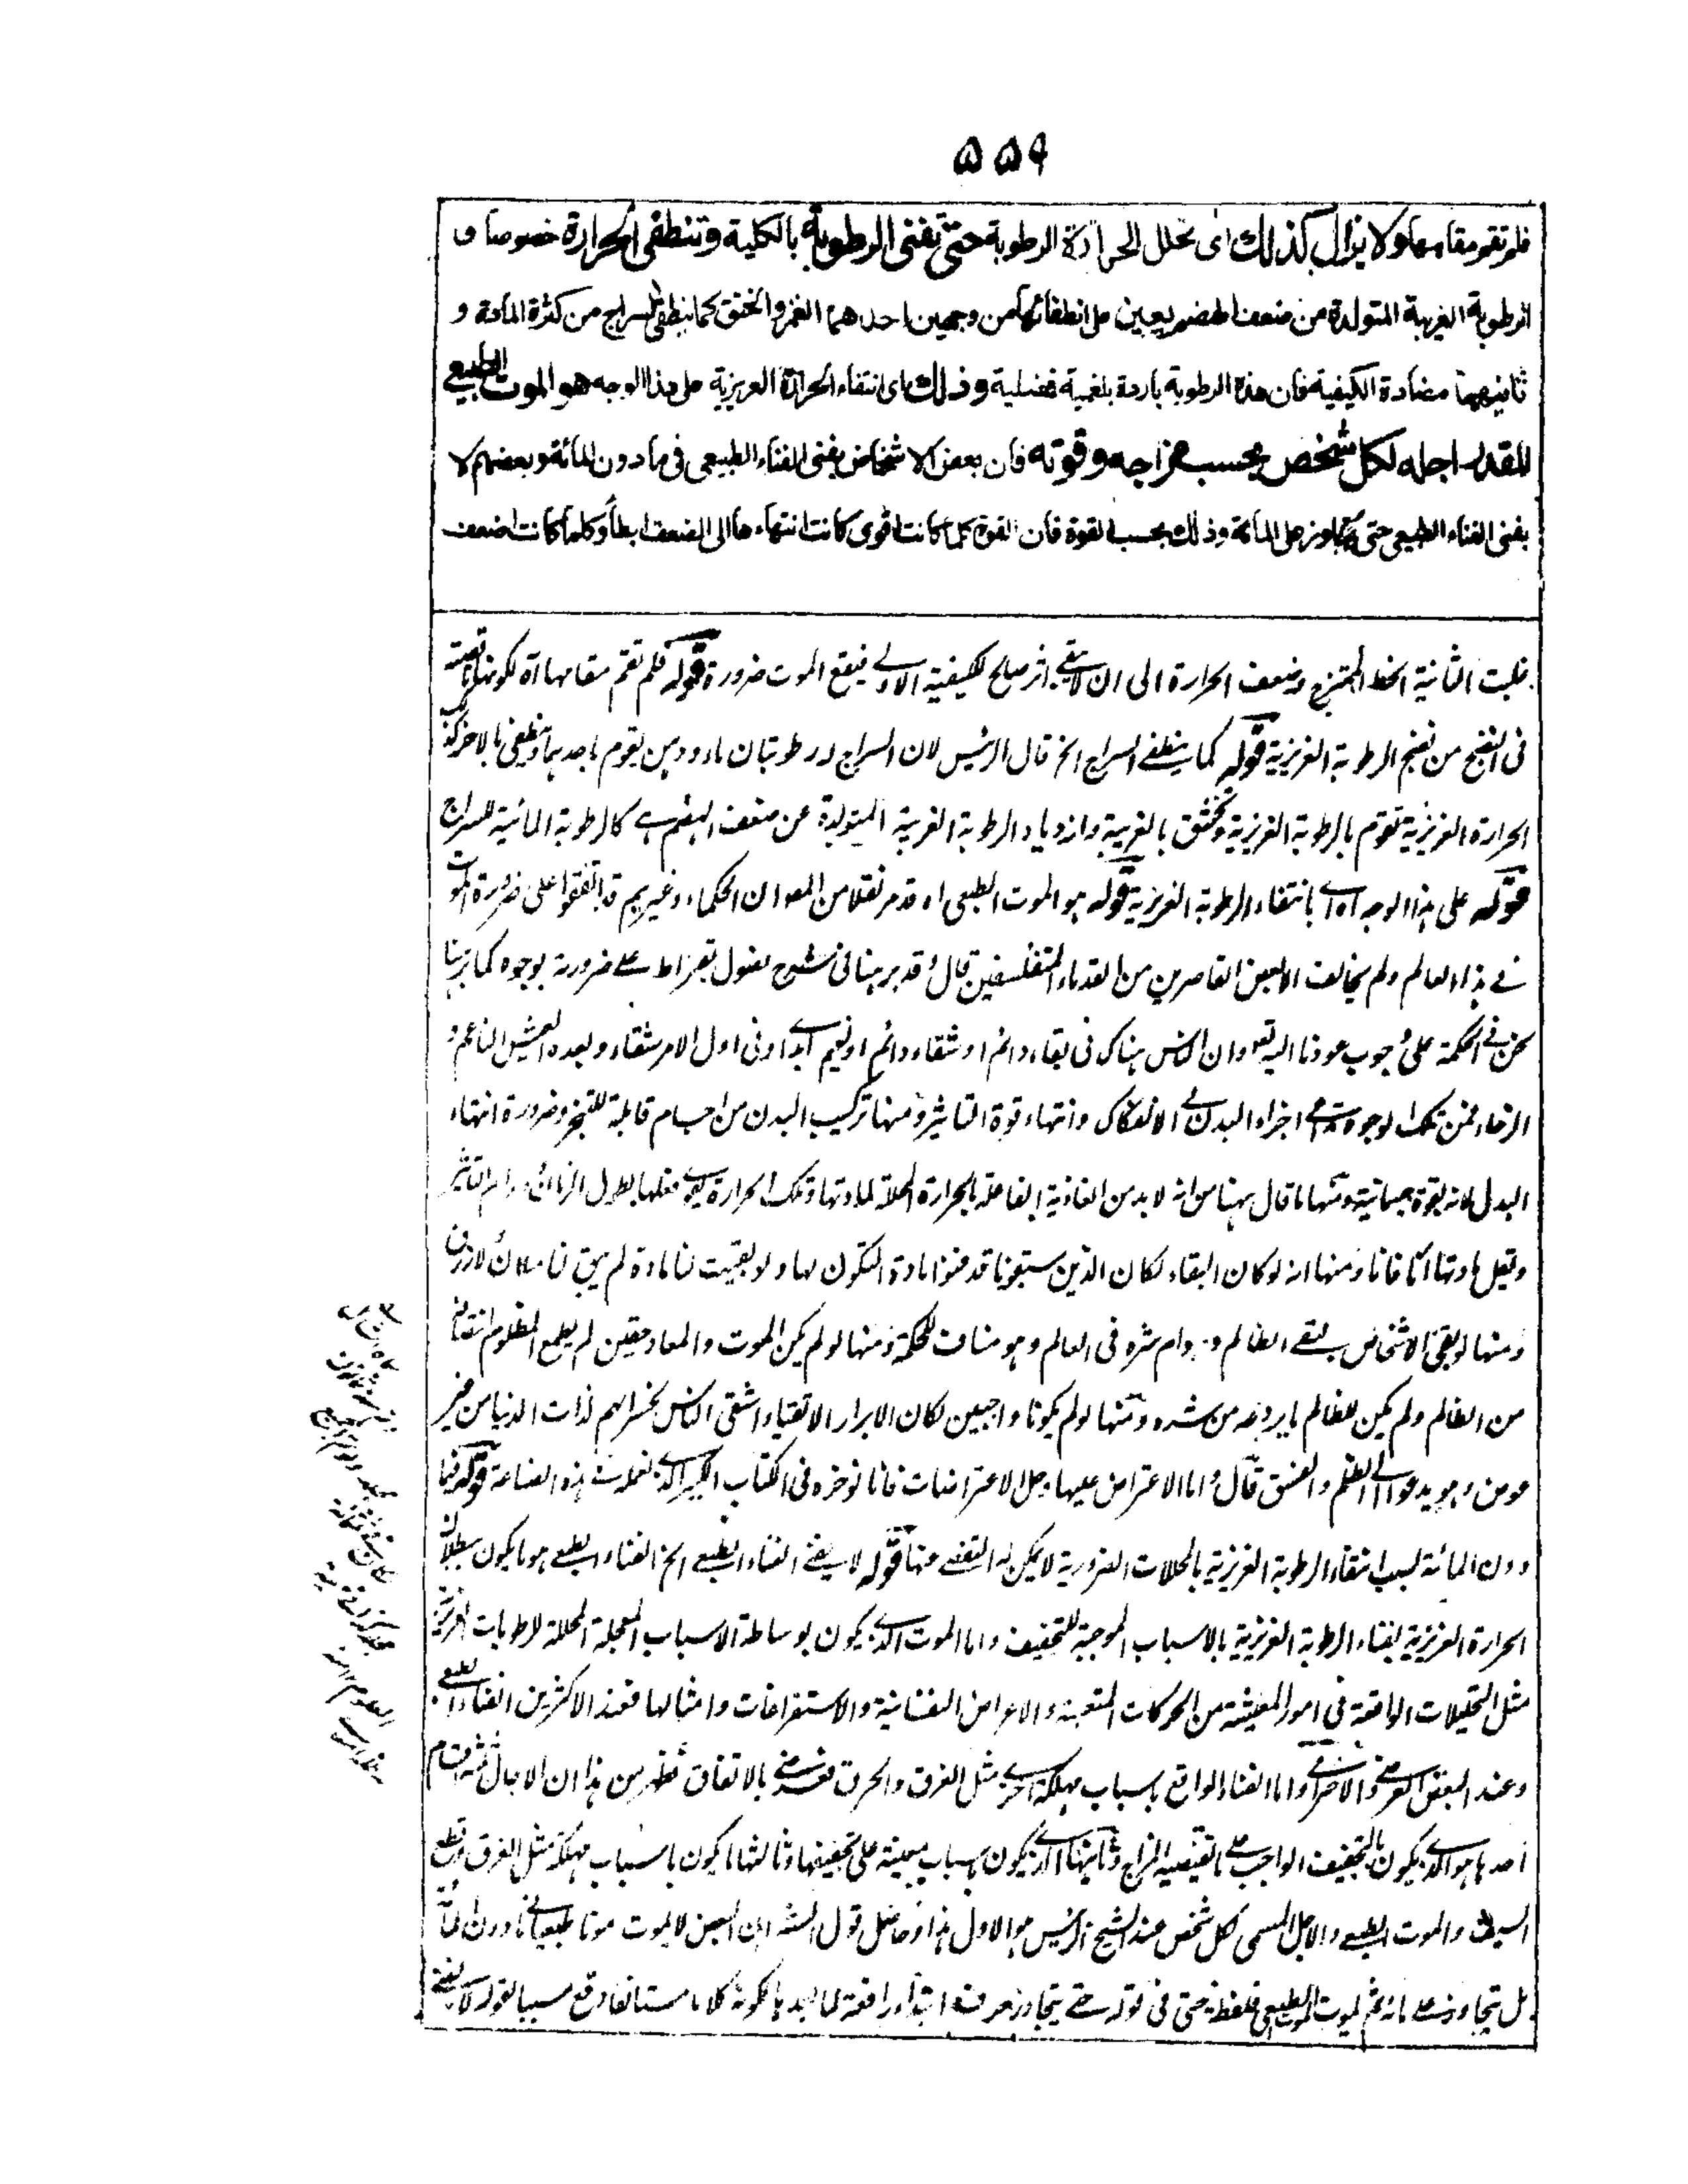 ۵۵۹
فلم تقم مقامها ولا يزال كذلك اى تحلل الحرارة الرطوبة حتى تفنى الرطوبة بالكلية وتنطفى الحرارة خصوصا و
الرطوبة الغريبة المتولدة من ضعف الهضم يعين على انطفائها من وجهين احدهما الغمر والخنق كما ينطفى السراج من كثرة المادة و
ثانيهما مضادة الكيفية فان هذه الرطوبة باردة بلغمية فضلية وذلك اى انتفاء الحرارة الغريزية على هذا الوجه هو الموت الطبيعى
المقدر اجله لكل شخص بحسب مزاجه وقوته فان بعض الاشخاص يفنى الفناء الطبيعى فى ما دون المائة وبعضهم لا
يفنى الفناء الطبيعى حتى يتجاوز على المائة وذلك بحسب القوة فان القوة كلما كانت اقوى كانت انتهاءها الى الضعف ابطأ وكلما كانت اضعف
غلبت الثانية الحظ الممتزج وضعف الحرارة الى ان لا يبقى اثر صالح للكيفية الاولى فيقع الموت ضرورة قوله فلم تقم مقامها آه لكونها ناقصة
فى النضج من نضج الرطوبة الغريزية قوله كما ينطفى السراج الخ قال الرئيس لان السراج له رطوبتان ماء ودهن يقوم باحدهما وينطفى بالاخر كذلك
الحرارة الغريزية تقوم بالرطوبة الغريزية وتختنق بالغريبة وازدياد الرطوبة الغريبة المتولدة عن ضعف الهضم هى كالرطوبة المائية للسراج
قوله على هذا الوجه آه اى بانتفاء الرطوبة الغريزية قوله هو الموت الطبيعى اه قد مر نقلا من ان الحكماء وغيرهم قد اتفقوا على ضرورة الموت
فى هذا العالم ولم يخالف الا بعض القاصرين من القدماء المتفلسفين قال وقد برهنا فى شرح فصول بقراط على ضرورته بوجوه كما برهنا
نحن فى الحكمة على وجوب عودنا اليه تعه وان الناس هناك فى بقاء دائم او شقاء دائم او نعيم ابدا وفى اول الامر شقاء وبعده العيش الناعم و
الرخاء فمن تلك الوجوه اجزاء البدن الى الانفكاك وانتهاء قوة التاثير ومنها تركيب البدن من اجسام قابلة للتبخر وضرورة انتهاء
البدل لانه بقوة جسمانية ومنها ما قال ههنا من انه لا بد من الغاذية الفاعلة بالحرارة المحللة لمادتها وتلك الحرارة فعلها بطول الزمان
ويقل مادتها آنا فانا ومنها انه لو كان البقاء لكان الذين سبقونا قد فنوا مادة التكون لها ولو بقيت لنا مادة لم يبق لنا مكان ولا رزق
ومنها لو بقى الاشخاص لبقى الظالم ودوام شره فى العالم وهو مناف للحكمة ومنها لو لم يكن الموت والمعاد حقين لم يطمع المظلوم انتقاما
من الظالم ولم يكن للظالم ما يردعه من شره ومنها لو لم يكونا واجبين لكان الابرار الاتقياء اشقى الناس لخسرانهم لذات الدنيا من غير
عوض وهو يدعو الى الظلم والفسق قال واما الاعتراض عليها وحل الاعتراضات فانا نوخره فى الكتاب الكبير الذى نعمله فى هذه الصناعة قوله فيما
دون المائة لسبب انتفاء الرطوبة الغريزية بالمحللات الضرورية لا يمكن له التفصى منها قوله لا يفنى الفناء الطبيعى الخ الفناء الطبيعى هو ما يكون ببطلان
الحرارة الغريزية لفناء الرطوبة الغريزية بالاسباب الموجبة للتجفيف واما الموت الذى يكون بوساطة الاسباب المعجلة المحللة للرطوبات الغريزية
مثل التحليلات الواقعة فى امور المعيشة من الحركات المتعبة والاعراض النفسانية والاستفراغات وامثالها فعند الاكثرين الفناء الطبيعى
وعند البعض العرضى والاخترامى واما الفناء الواقع باسباب مهلكة اخرى مثل الغرق والحرق فعرضى بالاتفاق فظهر من هذا ان الاجال ثلثة اقسام
احدها هو الذى يكون بالتجفيف الواجب على ما تقتضيه المزاج وثانيتها الذى يكون باسباب معينة على تجفيفها وثالثها ما يكون باسباب مهلكة مثل الغرق وقطع
السيف والموت الطبيعى والاجل المسمى لكل شخص عند الشيخ الرئيس هو الاول هذا وحاصل قول الشه ان البعض لا يموت موتا طبيعيا فى ما دون المائة
بل يتجاوز على مائة ثم يموت الموت الطبيعى فلفظة حتى فى قوله حتى يتجاوز حرف ابتداء رافعة لما بعدها لكونه كلاما مستانفا وقع مسببا لقوله لا يفنى